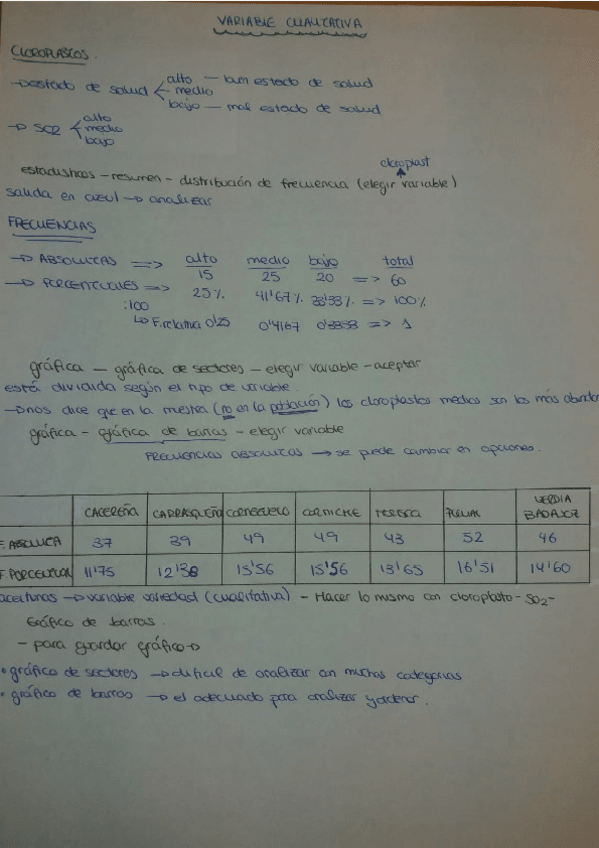 VARIABLE CUALITATIVA
CLOROPLASTOS.
→ estado de salud < alto — buen estado de salud
medio
bajo — mal estado de salud
→ SO2 < alto
medio
bajo
cloroplast
estadísticos – resumen – distribución de frecuencia (elegir variable)
salida en azul → analizar
FRECUENCIAS
→ ABSOLUTAS => alto medio bajo total
15 25 20 => 60
→ PORCENTUALES => 25% 41'67% 33'33% => 100%
:100
↳ F.relativa 0'25 0'4167 0'3333 => 1
gráfica — gráfica de sectores – elegir variable – aceptar
está dividida según el tipo de variable.
→ nos dice que en la muestra (no en la población) los cloroplastos medios son los más abundan
gráfica – gráfica de barras – elegir variable
FRECUENCIAS ABSOLUTAS → se puede cambiar en opciones.
CACEREÑA CARRASQUEÑO CORNEZUELO CORNICHE PICUAL VERDIAL BADAJOZ
F. ABSOLUTA 37 39 49 49 43 52 46
F PORCENTUAL 11'75 12'38 15'56 15'56 13'65 16'51 14'60
aceitunas → variable variedad (cualitativa) – Hacer lo mismo con cloroplasto – SO2 –
Gráfico de barras.
– para guardar gráfico →
• gráfico de sectores → difícil de analizar con muchas categorías
• gráfico de barras → el adecuado para analizar y ordenar.